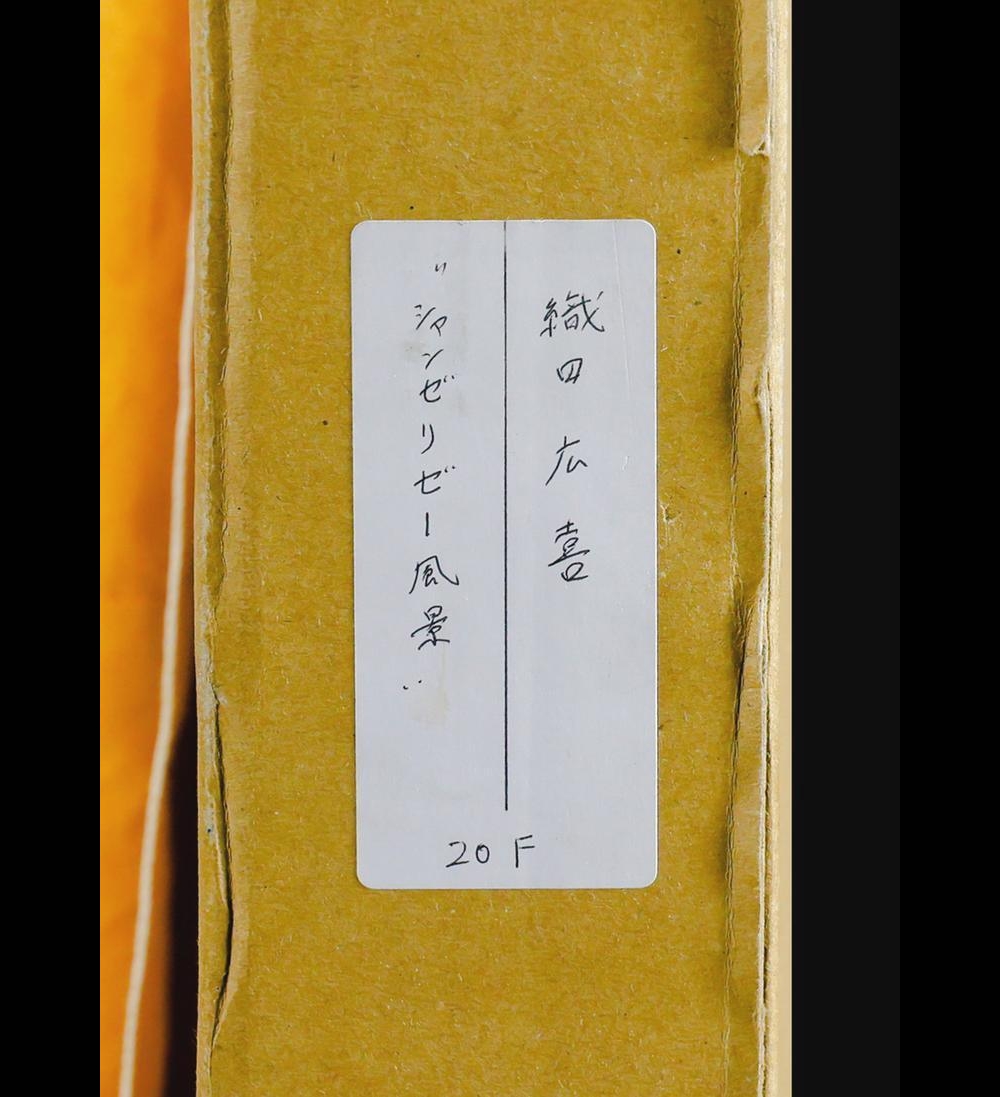 織田広喜
"シャンゼリゼー風景"
20F